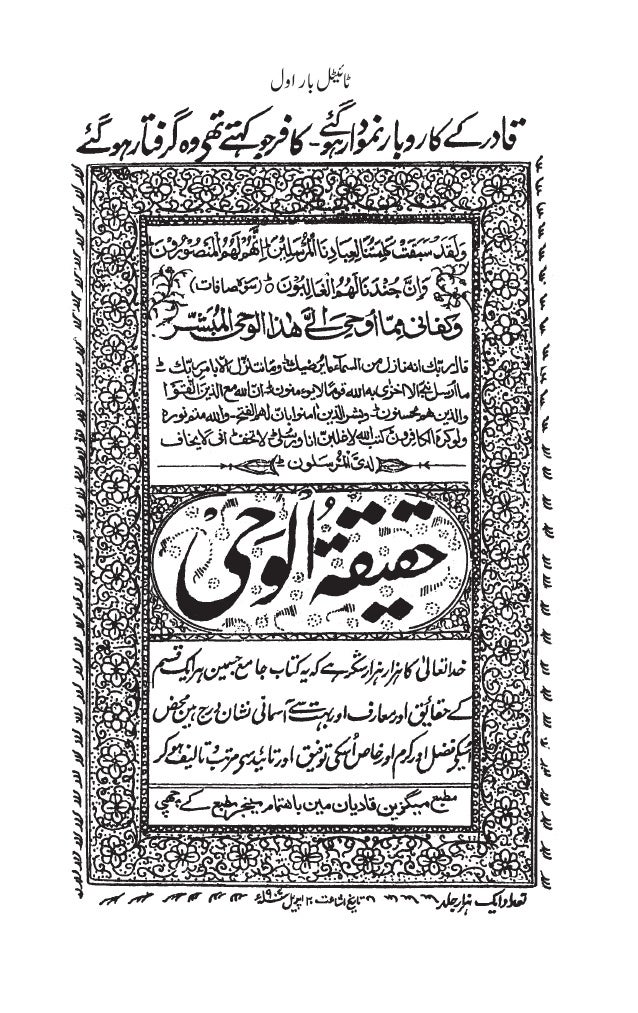 ٹائیٹل بار اول
قادر کے کاروبار نمودار ہو گئے - کافر جو کہتے تھے وہ گرفتار ہو گئے
وَلَقَدْ سَبَقَتْ كَلِمَتُنَا لِعِبَادِنَا الْمُرْسَلِيْنَ اِنَّهُمْ لَهُمُ الْمَنْصُوْرُوْنَ
وَاِنَّ جُنْدَنَا لَهُمُ الْغَالِبُوْنَ (سورہ صافات)
وكفانى مِمّا اُوحِىَ اِلَىَّ هٰذا الوحى المُبشّر
قال ربّك انه نازل من السماء ما يرضيك وما نتنزل الا بامر ربّك
ما ارسل نبى الا اخزى به الله قوما لا يومنون ان الله مع الذين اتقوا
والذين هم محسنون وبشر الذين امنوا بان لهم الفتح والله متم نوره
ولو كره الكافرون كتب الله لاغلبن انا ورسلى لا تخف انى لا يخاف
لدىّ المُرسلون
حقیقۃ الوحی
خدا تعالیٰ کا ہزار ہزار شکر ہے کہ یہ کتاب جامع جسمیں ہر ایک قسم
کے حقائق اور معارف اور بہت سے آسمانی نشان درج ہیں محض
اسکے فضل اور کرم اور خاص اُسکی توفیق اور تائید سے مرتب و تالیف ہو کر
مطبع میگزین قادیان مین باهتمام مینجر مطبع کے چھپی
تعداد ایک ہزار جلد
تاریخ اشاعت ۲۰ اپریل ۱۹۰۷ء